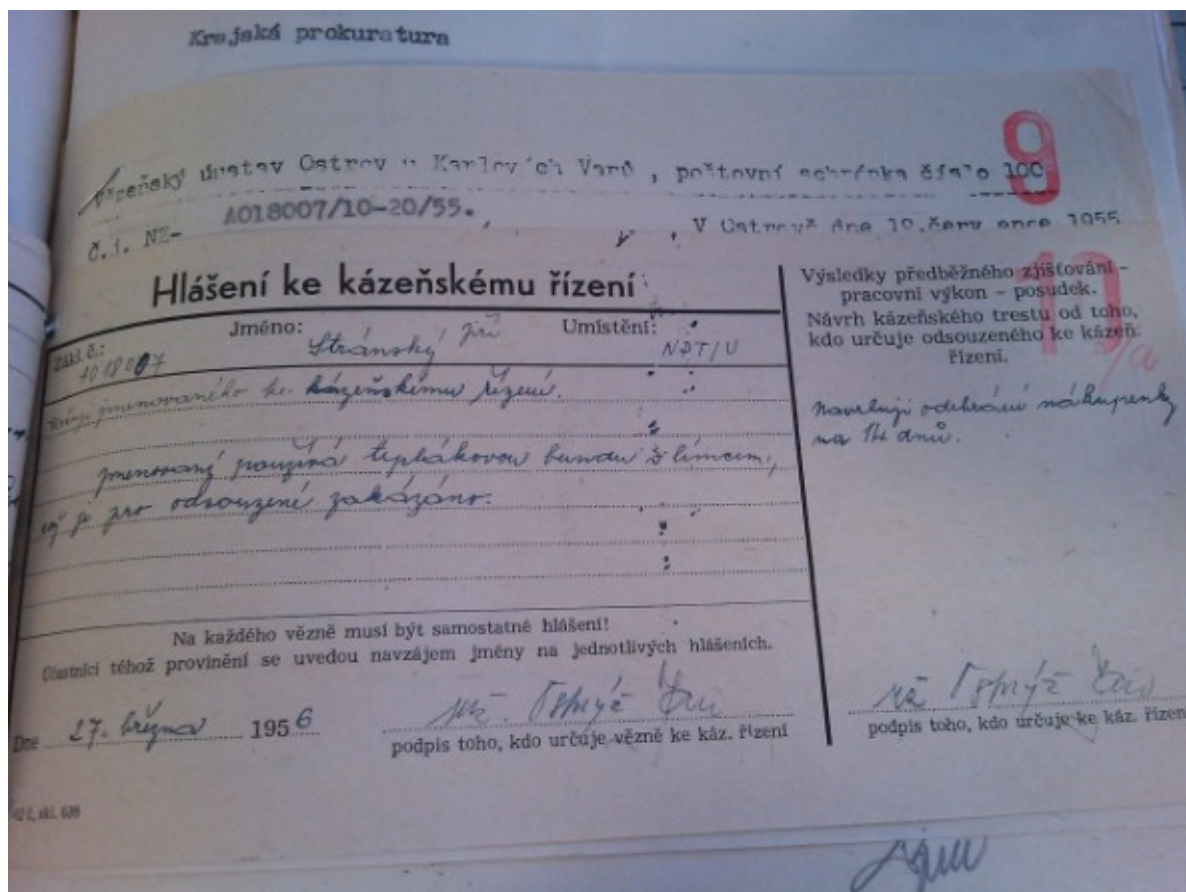 Krajská prokuratura
9
Vězeňský ústav Ostrov u Karlových Varů, poštovní schránka číslo 100
Č.j. NZ- A018007/10-20/55. , V Ostrově dne 10. července 1955
Hlášení ke kázeňskému řízení
Zákl. č.: Jméno: Umístění:
A018007 Stránský Jiří NPT/U
jmenovaného ke kázeňskému řízení.
Jmenovaný používá teplákovou bundu s límcem,
což je pro odsouzené zakázáno.
Na každého vězně musí být samostatné hlášení!
Účastníci téhož provinění se uvedou navzájem jmény na jednotlivých hlášeních.
Dne 27. března 1956
podpis toho, kdo určuje vězně ke káz. řízení
Výsledky předběžného zjišťování –
pracovní výkon – posudek.
Návrh kázeňského trestu od toho,
kdo určuje odsouzeného ke kázeň.
řízení.
Navrhuji odebrání nákupenky
na 14 dnů.
podpis toho, kdo určuje ke káz. řízen
skl. 638